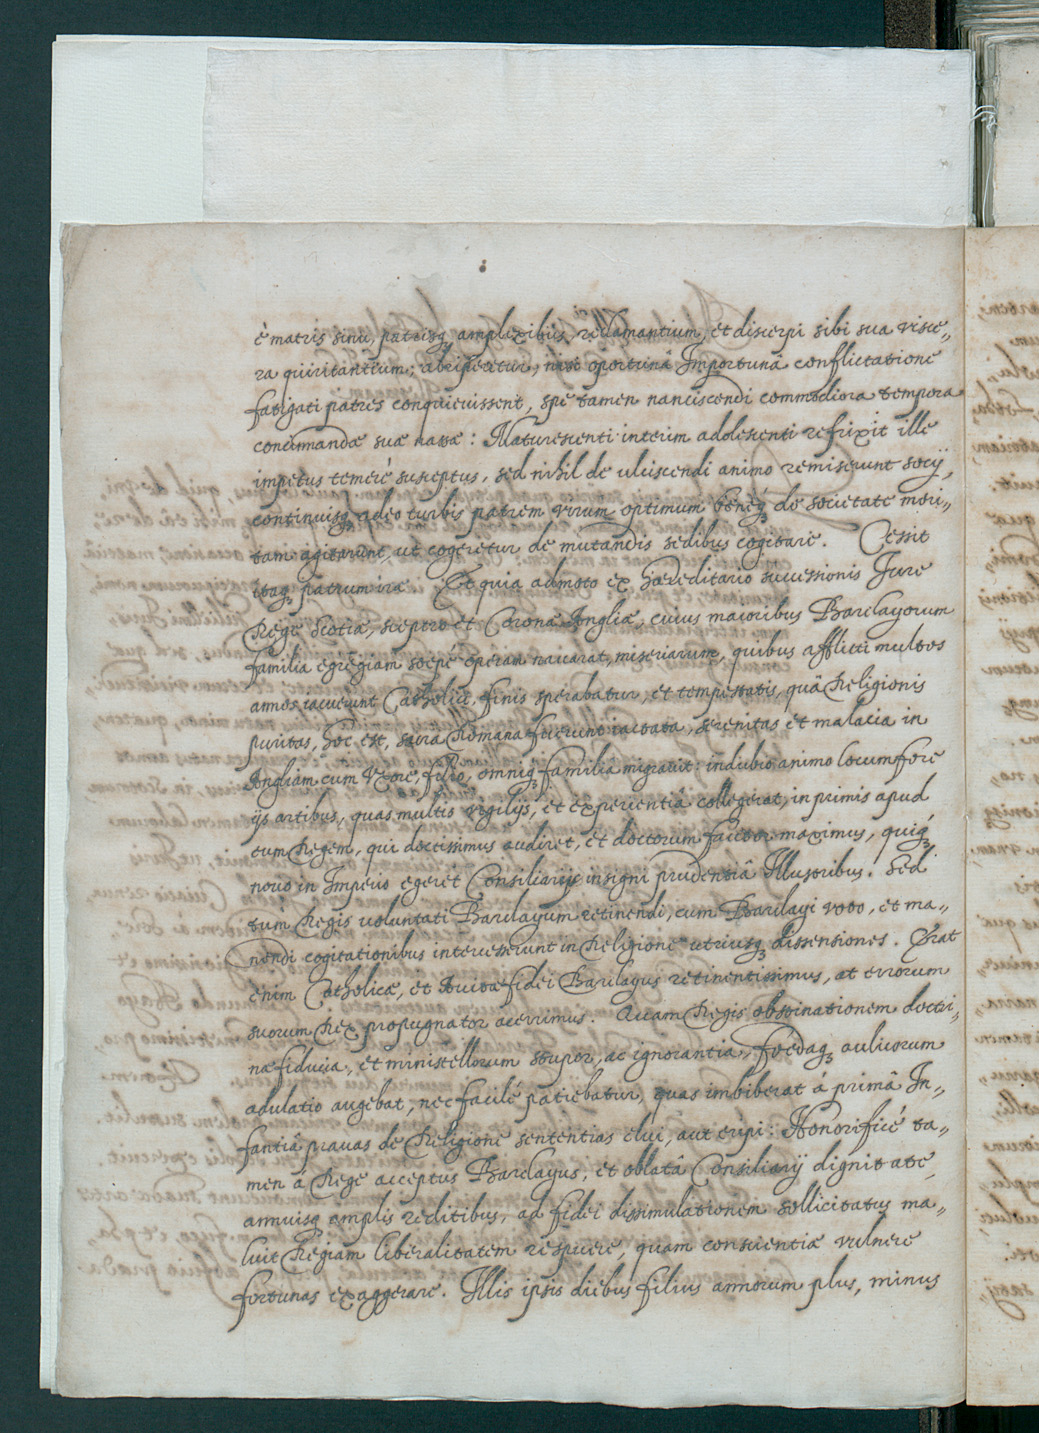 è matris sinu, patrisq₃ amplexibus reclamantium, et discerpi sibi sua visce„
ra quiritantium; abriperetur, nisi oportunâ Importunâ conflictatione
fatigati patres conquievissent, spe tamen nanciscendi commodiora tempora
concinnandæ suæ nassæ: Maturescenti interim adolescenti refrixit ille
impetus temerè susceptus, sed nihil de ulciscendi animo remiserunt socij,
continuisq₃ adeo turbis patrem virum optimum beneq́₃ de societate meri„
tum agitarunt, ut cogeretur de mutandis sedibus cogitare. Cessit
itaq₃ patrum iræ Et quia admoto ex hæreditario successionis Jure
Rege Scotiæ, sceptro et Coronæ Angliæ, cuius maioribus Barclayorum
familia egregiam sæpè operam navarat, miseriarum, quibus afflicti multos
annos iacuerunt Catholici, finis sperabatur, et tempestatis, quâ Religionis
puritas, hoc est, sacra Romana fuerunt iactata, serenitas et malacia in
Angliam cum Uxore, filio, omniq₃ familiâ migravit: indubio animo locum fore
ijs artibus, quas multis vigilijs, et experientiâ collegerat, in primis apud
eum Regem, qui doctissimus audiret, et doctorum fautor maximus, quiq́₃
novo in Imperio egeret Consiliarijs insigni prudentiâ Illustribus. Sed
tùm Regis voluntati Barclayum retinendi, cum Barclayi voto, et ma„
nendi cogitationibus intercesserunt in Religione utriusq₃ dissensiones. Erat
enim Catholicæ, et Avitæ fidei Barclayus retinentissimus, at errorum
suorum Rex propugnator acerrimus. Quam Regis obstinationem doctri„
næ fiducia, et ministellorum stupor, ac ignorantia, foedaq₃ aulicorum
adulatio augebat, nec facilè patiebatur, quas imbiberat á primâ In„
fantiâ pravas de Religione sententias elui, aut eripi: Honorificè ta„
men á Rege acceptus Barclayus, et oblatâ Consiliarij dignitate,
annuisq₃ amplis reditibus, ad fidei dissimulationem sollicitatus ma„
luit Regiam liberalitatem respuere, quam conscientiæ vulnere
fortunas exaggerare. Illis ipsis diebus filius annorum plus, minus